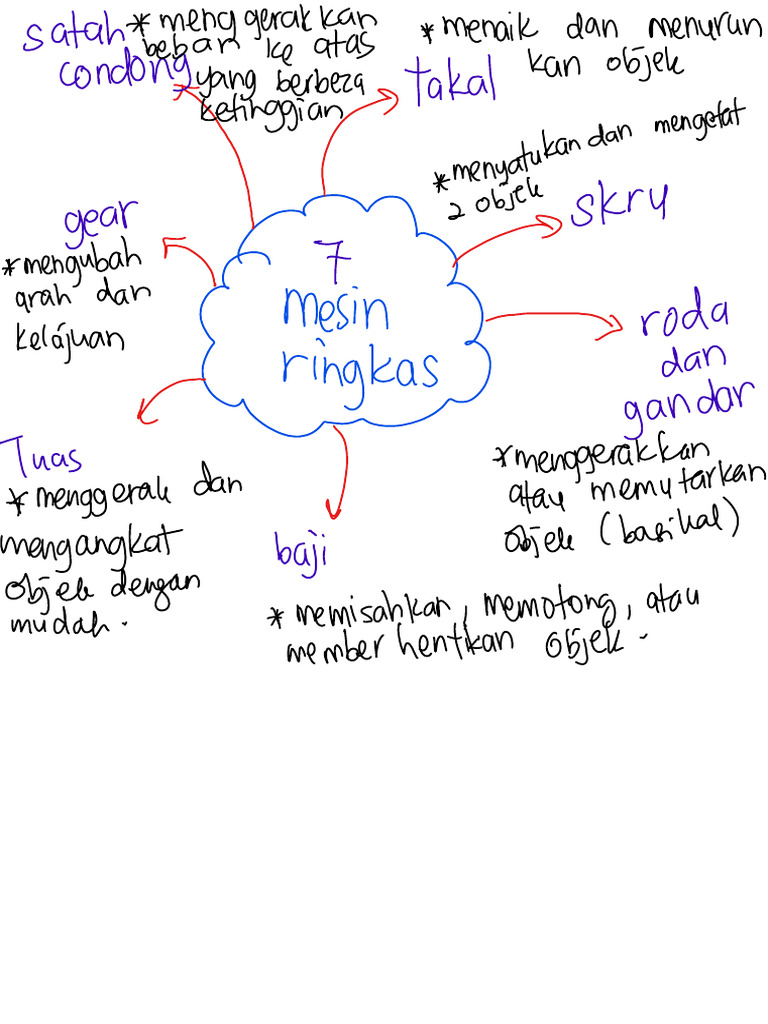 7
mesin
ringkas
satah
condong
* menggerakkan
beban ke atas
yang berbeza
ketinggian
takal
* menaik dan menurun
kan objek
skru
* menyatukan dan mengetat
2 objek
roda
dan
gandar
* menggerakkan
atau memutarkan
objek (basikal)
baji
* memisahkan, memotong, atau
member hentikan objek.
Tuas
* menggerak dan
mengangkat
objek dengan
mudah.
gear
* mengubah
arah dan
kelajuan